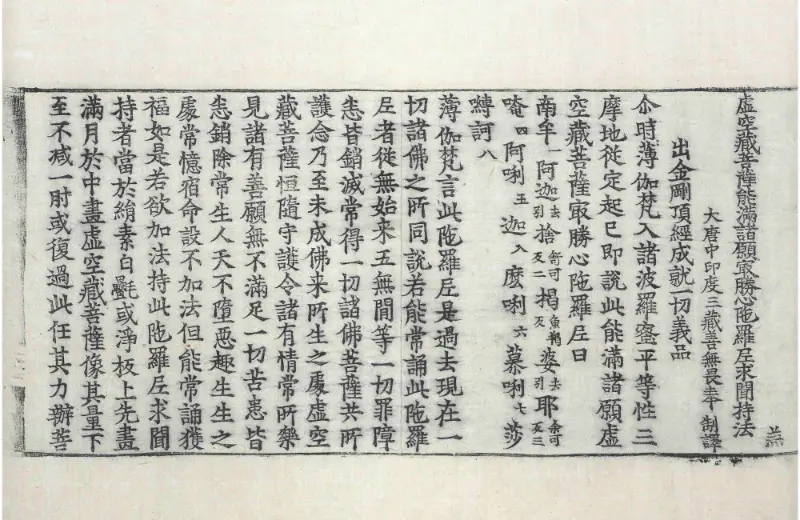 虛空藏菩薩能滿諸願㝡勝心陁羅𡰱求聞持法 羔
大唐中印度三藏善無畏奉 制譯
出金剛頂經成就一切義品
尒時薄伽梵入諸波羅蜜平等性三
摩地從定起已即說此能滿諸願虛
空藏菩薩㝡勝心陁羅𡰱曰
南牟一阿迦去引捨舒可反二揭魚羯反婆去引耶余可反三
唵四阿唎五迦入麽唎六慕唎七莎
嚩訶八
薄伽梵言此陁羅𡰱是過去現在一
切諸佛之所同說若能常誦此陁羅
𡰱者從無始来五無間等一切罪障
悉皆銷滅常得一切諸佛菩薩共所
護念乃至未成佛来所生之處虛空
藏菩薩恒隨守護令諸有情常所樂
見諸有善願無不滿足一切苦患皆
悉銷除常生人天不墮惡趣生生之
處常憶宿命設不加法但能常誦獲
福如是若欲加法持此陁羅𡰱求聞
持者當於絹素白㲲或淨板上先畫
滿月於中畫虛空藏菩薩像其量下
至不減一肘或復過此任其力辦菩